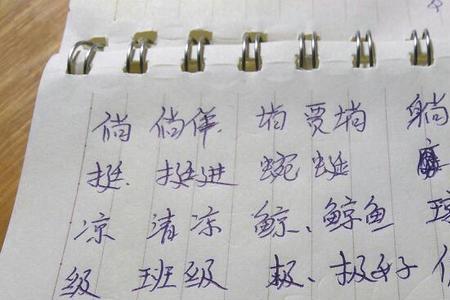 倘 倘佯 躺
挺 挺进 蜿蜒
凉 清凉 鲸、鲸鱼 琼
级 班级 极、极好